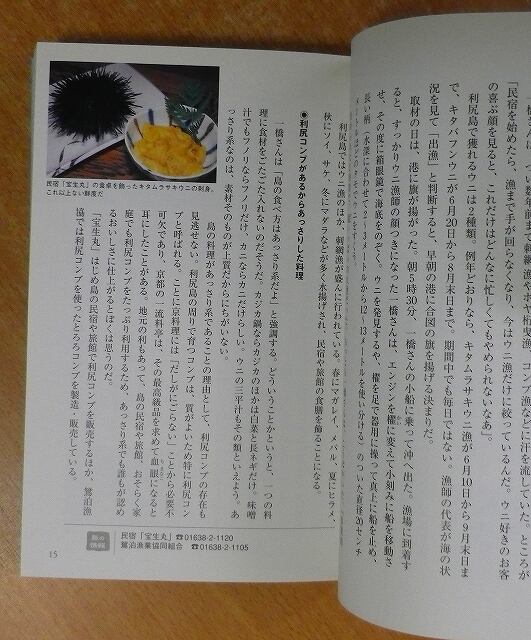 「民宿を始めたら、漁まで手が回らなくなり、今はウニ漁だけに絞っているんだ。ウニ好きのお客
の喜ぶ顔を見ると、これだけはどんなに忙しくてもやめられないなあ」
利尻島で獲れるウニは2種類。例年どおりなら、キタムラサキウニが6月10日から9月末日ま
で、キタバフンウニが6月20日から8月末日まで。期間中でも毎日ではない。漁師の代表が海の状
況を見て「出漁」と判断すると、早朝の港に合図の旗を揚げる決まりだ。
取材の日は、港に旗が揚がった。朝5時30分、一橋さんの小船に乗って沖へ出た。漁場に到着す
ると、すっかりウニ漁師の顔つきになった一橋さんは、エンジンを櫂に変えて小刻みに船を移動さ
せ、その度に箱眼鏡で海底をのぞく。ウニを発見するや、櫂を足で器用に操って真上に船を止め、
長い柄（水深に合わせて2～3メートルから12～13メートルを使い分ける）のついた直径20センチ
利尻島ではウニ漁のほか、刺網漁が盛んに行われている。春にマガレイ、メバル、夏にヒラメ、
秋にソイ、サケ、冬にマダラなどが多く水揚げされ、民宿や旅館の食膳を飾ることになる。
●利尻コンブがあるからあっさりした料理
一橋さんは「島の食べ方はあっさり系だよ」と強調する。どういうことかというと、一つの料
理に食材をごたごた入れないのだそうだ。カジカ鍋ならカジカのほかは白菜と長ネギだけ。味噌
汁でもフノリならフノリだけ、カニならカニだけらしい。ウニの三平汁もその類といえよう。あ
っさり系なのは、素材そのものが上質だからにちがいない。
島の料理があっさり系であることの理由として、利尻コンブの存在も
見逃せない。利尻島の周りで育つコンブは、質がよいため特に利尻コン
ブと呼ばれる。ことに京料理には「だしがにごらない」ことから必要不
可欠であり、京都の一流料亭は、その最高級品を求めて血眼になると
耳にしたことがある。地元の利もあって、島の民宿や旅館、おそらく家
庭でも利尻コンブをたっぷり利用するため、あっさり系でも誰もが認め
るおいしさに仕上がるとぼくは思うのだ。
「宝生丸」はじめ島の民宿や旅館で利尻コンブを販売するほか、鴛泊漁
協では利尻コンブを使ったとろろコンブを製造・販売している。
民宿「宝生丸」の食卓を飾ったキタムラサキウニの刺身。
これ以上ない鮮度だ
旅の
情報
民宿「宝生丸」 ☎01638-2-1120
鴛泊漁業協同組合 ☎01638-2-1105
15